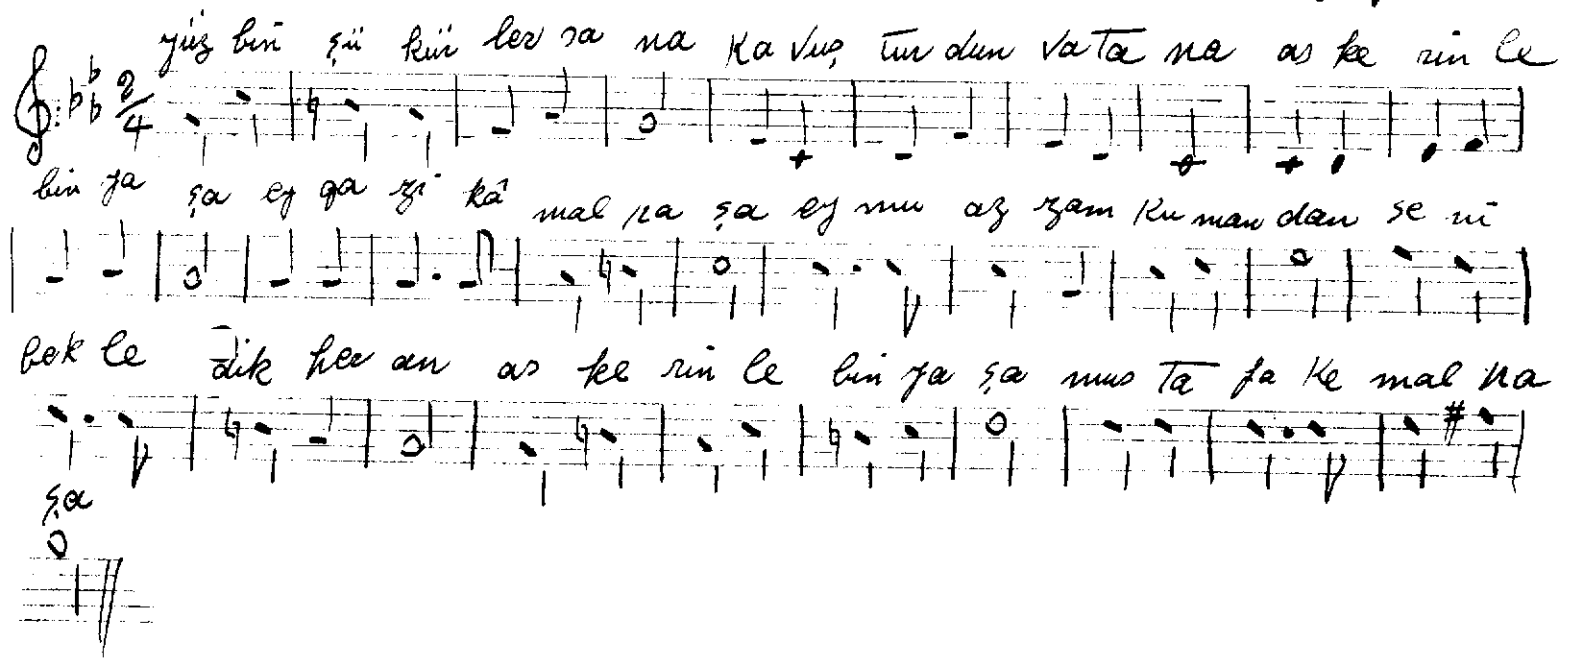 2/4
yüz bin şü kür ler sa na Ka vuş tur dun va ta na as ke rin le
bin ya şa ey ga zi kâ mal pa şa ey mu az zam Ku man dan se ni
bek le dik her an as ke rin le bin ya şa mus ta fa Ke mal pa
şa